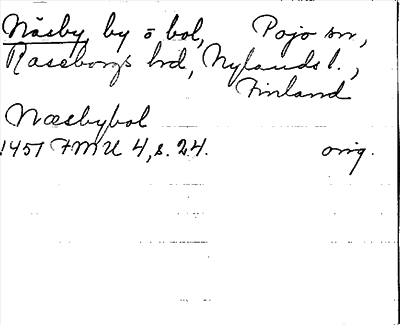 Näsby, by o bol, Pojo sn,
Raseborgs hd, Nylands l.,
Finland
Næsbybol
1451 FMU 4, s. 24. orig.